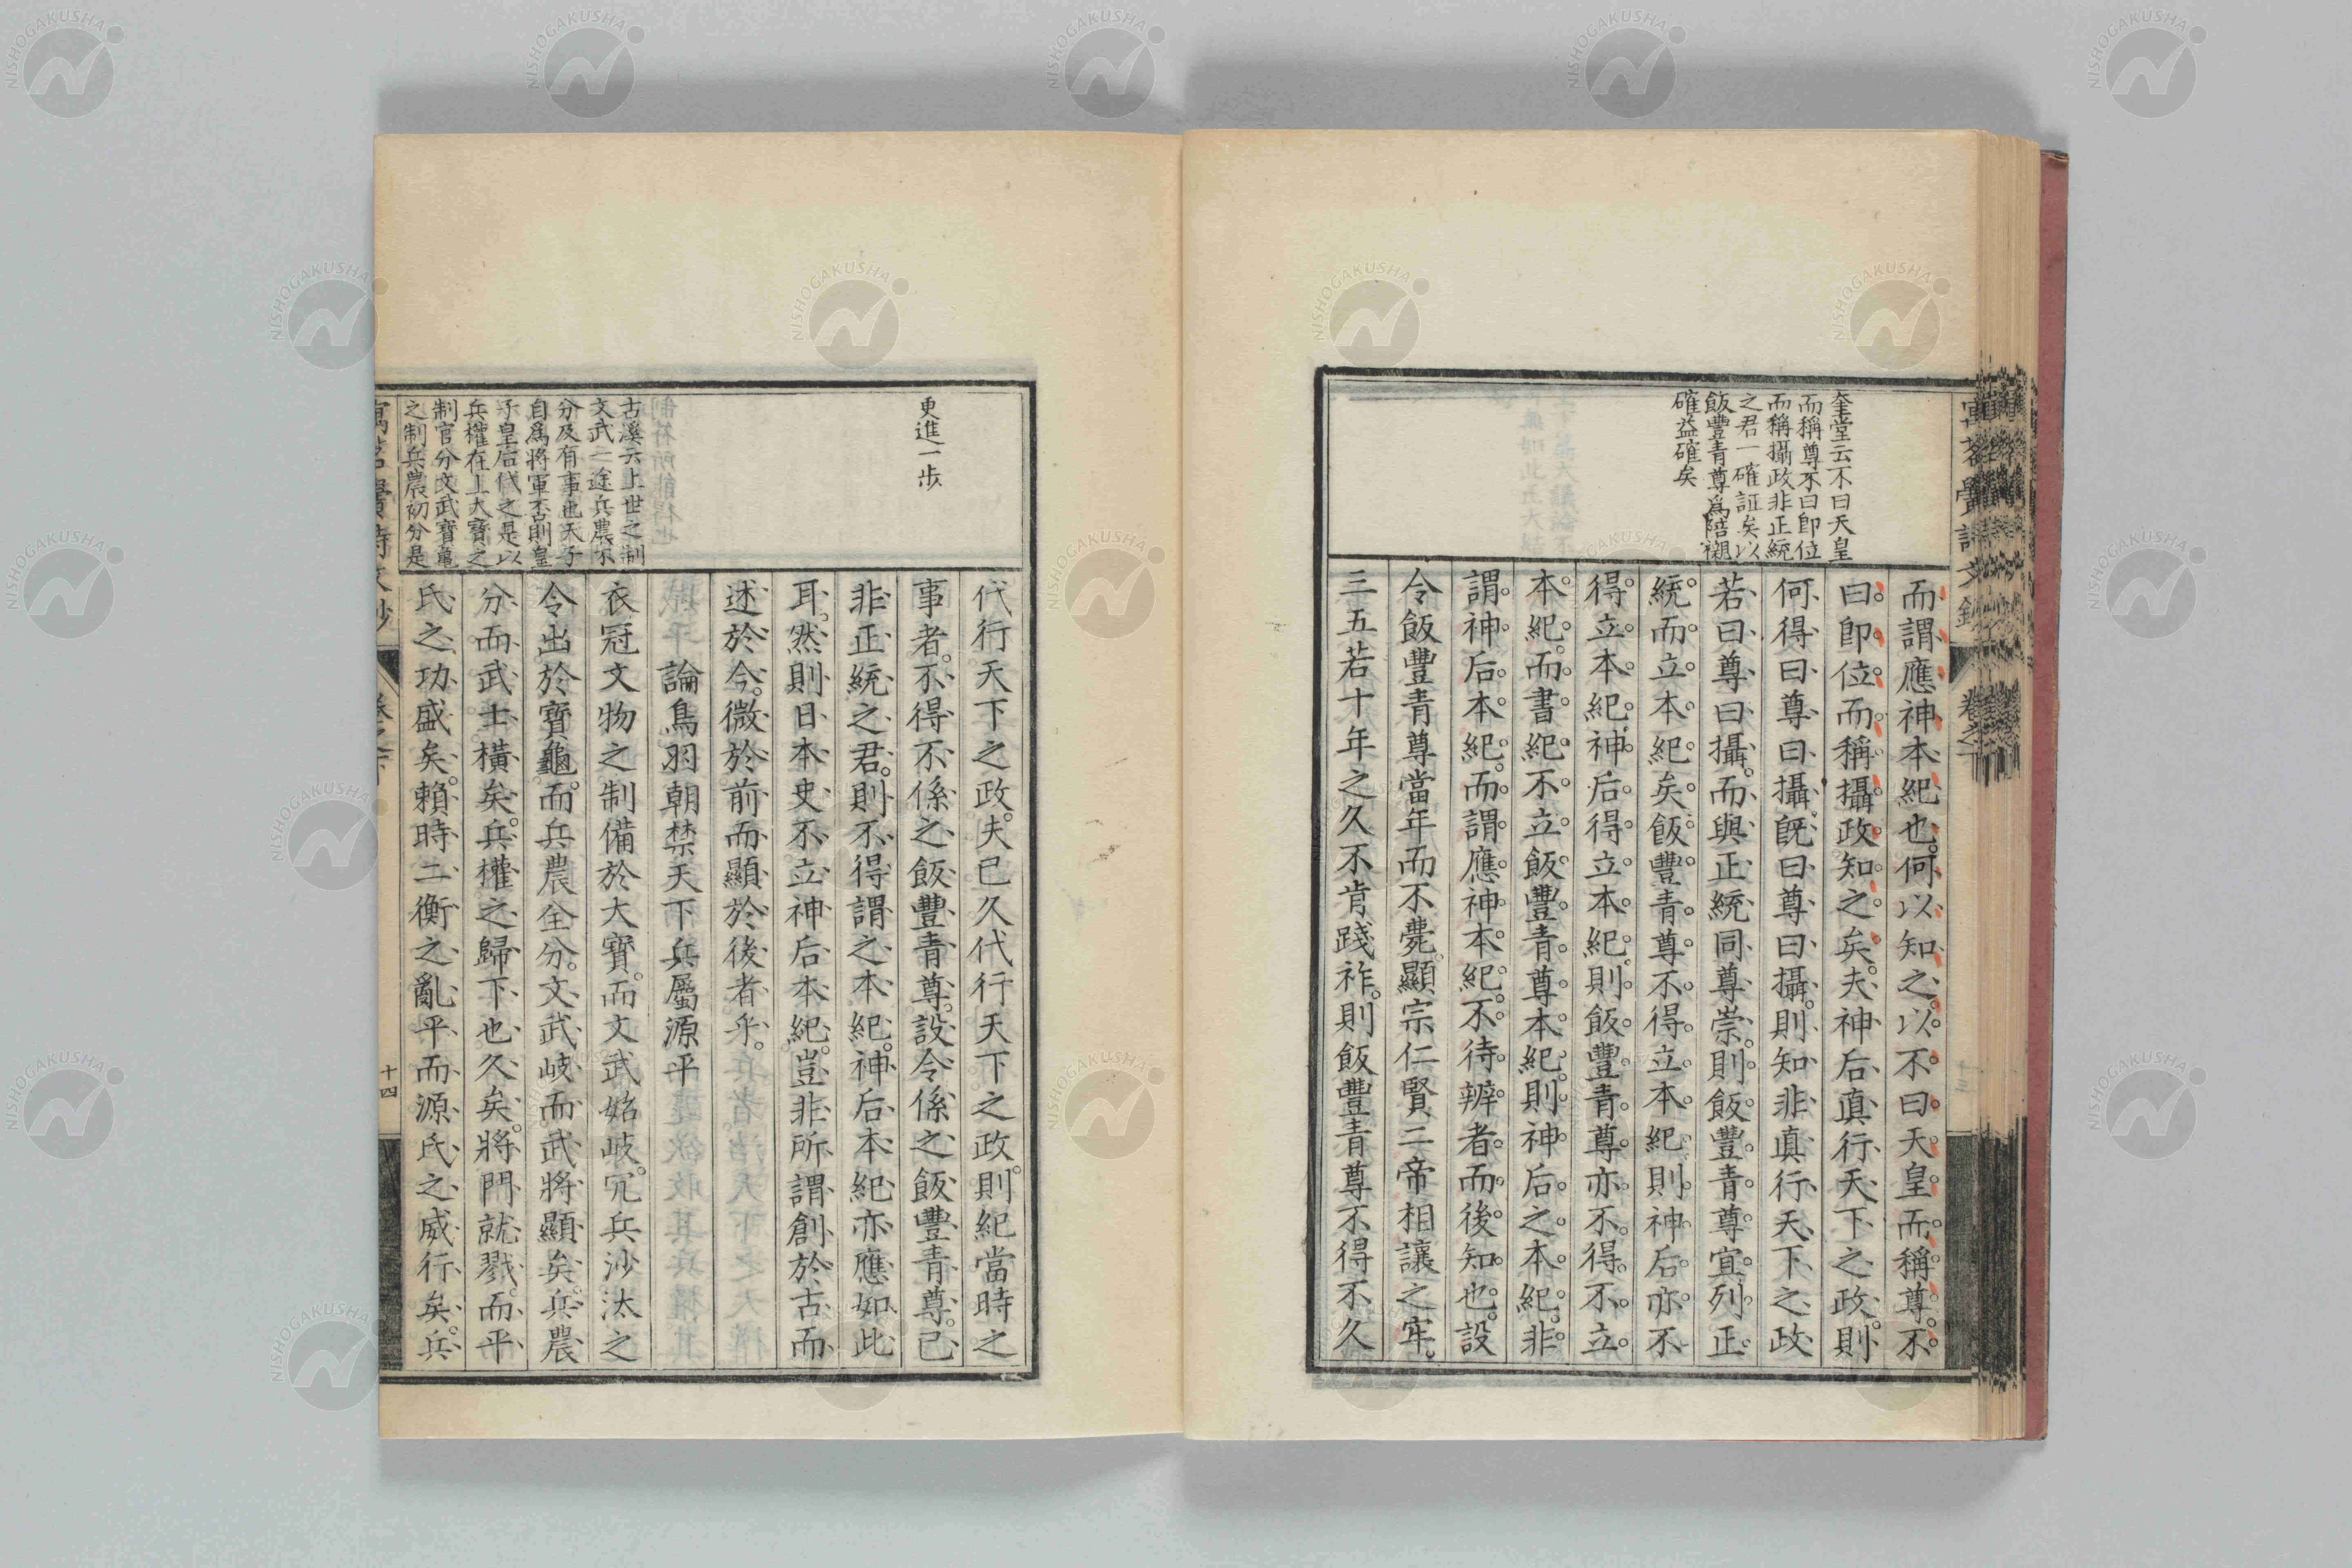 奎堂云不曰天皇
而稱尊不曰卽位
而稱攝政非正統
之君一確証矣以
飯豐青尊爲陪襯
確益確矣
而謂應神本紀也。何以知之。以。不。曰。天皇而。稱。尊。不。
曰。卽。位。而。稱。攝。政。知。之。矣。夫神后眞行天下之政。則
何得曰尊曰攝。旣曰尊曰攝。則知非眞行天下之政
若曰尊曰攝。而與正統同尊崇。則飯豐青尊宜列正
統。而立本紀矣。飯豐青尊不得立本紀。則神后亦不
得立本紀。神后得立本紀。則飯豐青尊亦不得不立
本紀。而書紀不立飯豐青尊本紀。則神后之本紀。非
謂神后本紀。而謂應神本紀。不待辨者。而後知也。設
令飯豐青尊當年而不薨。顯宗仁賢二帝相讓之牢。
三五若十年之久不肯踐祚。則飯豐青尊不得不久
更進一步
古溪云上世之制
文武一途兵農不
分及有事也天子
自爲將軍否則皇
子皇后代之是以
兵權在上大寶之
制官分文武寶龜
之制兵農初分是
代行天下之政。夫已久代行天下之政。則紀當時之
事者。不得不係之飯豐青尊。設令係之飯豐青尊。已
非正統之君。則不得謂之本紀。神后本紀亦應如此
耳。然則日本史不立神后本紀。豈非所謂創於古而
述於今。微於前而顯於後者乎。
論鳥羽朝禁天下兵屬源平
衣冠文物之制備於大寶。而文武始岐。冗兵沙汰之
令出於寶龜。而兵農全分。文武岐而武將顯矣。兵農
分而武士橫矣。兵權之歸下也久矣。將門就戮。而平
氏之功盛矣。賴時二衡之亂平。而源氏之威行矣。兵
十四